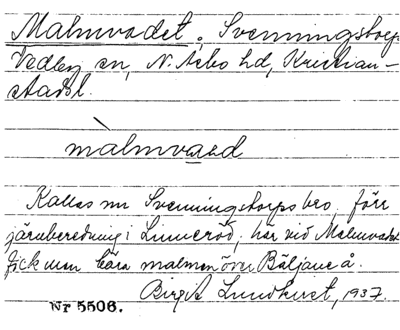 Malmvadet, Svenningstorps
Vedby sn, N. Åsbo hd, Kristian-
stads l.
màlmvaəd
Kallas nu Svenningstorps bro, förr
järnberedning i Linneröd, här vid Malmvadet
fick man köra malmen över Bäljane å.
Birgit Lundkvist, 1937.
Nr 5506.